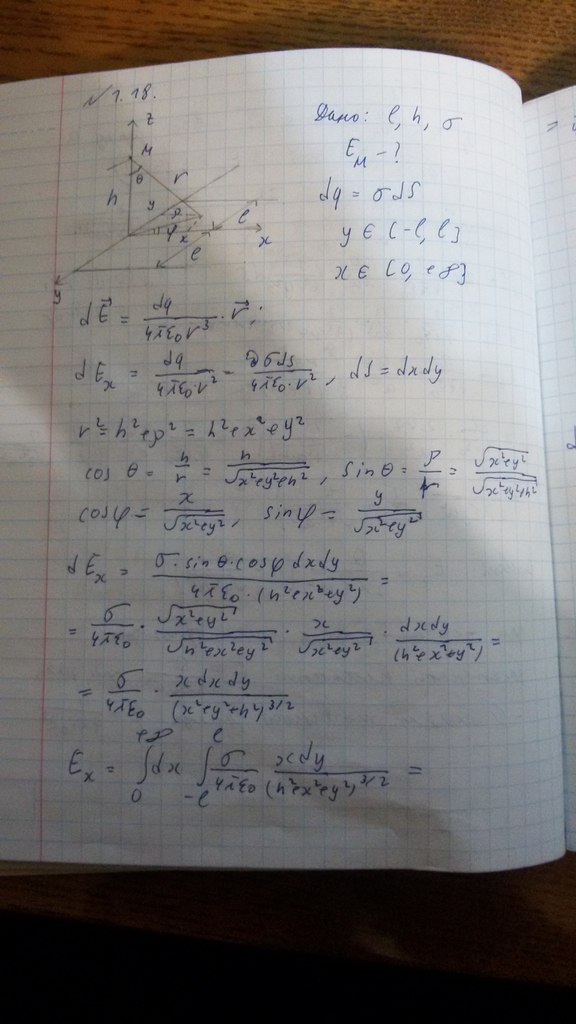 № 1.18.
z
M
θ
r
h
y
ρ
φ
x
l
l
x
y
Дано: l, h, σ
E_M - ?
dq = σdS
y ∈ [-l, l]
x ∈ [0, +∞]
dE⃗ = dq/(4πε₀r³) · r⃗;
dEₓ = dq/(4πε₀·r²) = σdS/(4πε₀·r²), dS = dxdy
r² = h²+ρ² = h²+x²+y²
cos θ = h/r = h/√(x²+y²+h²), sin θ = ρ/r = √(x²+y²)/√(x²+y²+h²)
cosφ = x/√(x²+y²), sinφ = y/√(x²+y²)
dEₓ = σ·sinθ·cosφ dxdy/(4πε₀·(h²+x²+y²)) =
= σ/(4πε₀) · √(x²+y²)/√(h²+x²+y²) · x/√(x²+y²) · dxdy/(h²+x²+y²) =
= σ/(4πε₀) · xdxdy/(x²+y²+h²)^3/2
Eₓ = ∫₀^+∞ dx ∫₋ₗ^l σ/(4πε₀) xdy/(h²+x²+y²)^3/2 =